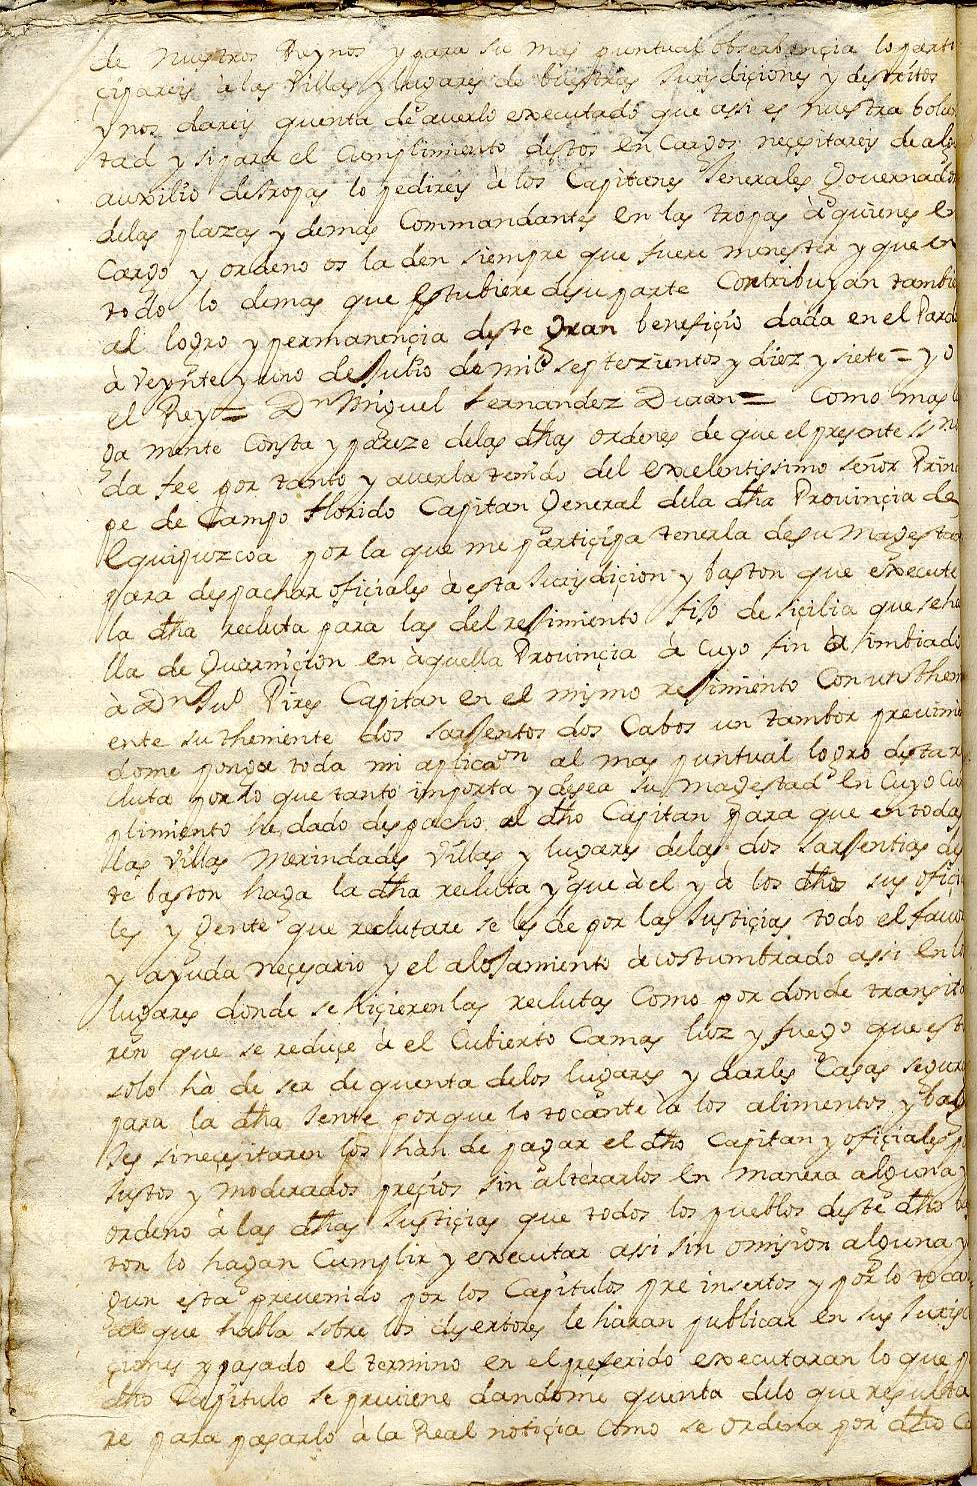 de nuestros Reynos y para su mas puntual obserbançia lo parti
çipareis à las Villas y lugares de buestras Jurisdiçiones y destritos
y nos dareis quenta de averlo executado que assi es nuestra bolun
tad y si para el Cumplimiento destos en Cargos neçesitareis de algu
auxilio de tropas lo pedireis à los Capitanes Jenerales Governado
delas plazas y demas Commandantes en las tropas à quienes en
Cargo y ordeno os la den siempre que fuere menester y que en
todo lo demas que estubiere de su parte Contribuyan tambie
al logro y permanençia deste gran benefiçio dada en el Pardo
à Veynte y uno de Julio de mil septezientos y diez y siete = yo
el Rey = Dn Miguel Fernandez Duran = Como mas
ga mente Consta y pareze delas dhas ordenes de que el presente ssno
da fee por tanto y averla tenido del excelentissimo señor Prinçi
pe de Campo florido Capitan General dela dha Provinçia de
Equipuzcoa por la que me partiçipa tenerla de su Magestad
para despachar ofiçiales à esta Jurisdiçion y baston que execute
la dha recluta para las del rejimiento fijo de siçilia que se ha
lla de Guarniçion en àquella Provinçia à Cuyo fin à imbiado
à Dn Juo Pires Capitan en el mismo rejimiento Con un them
ente su themiente dos sarjentos dos Cabos un tambor previnien
dome ponga toda mi aplicaon al mas puntual logro desta re
cluta por lo que tanto importa y desea su magestad en Cuyo Cu
plimiento he dado despacho al dho Capitan para que en todas
las Villas Merindades Villas y lugares delas dos sarjentias des
te baston haga la dha recluta y que à el y à los dhos sus ofiçia
les y gente que reclutare se les de por las Justiçias todo el favor
y ayuda neçesario y el alojamiento àcostumbrado assi en los
lugares donde se hiçieren las reclutas Como por donde transita
ren que se reduçe à el Cubierto Camas luz y fuego que esto
solo hà de ser de quenta delos lugares y darles Casas seguras
para la dha Jente porque lo tocante à los alimentos y baga
jes si neçesitaren los hàn de pagar el dho Capitan y ofiçiales à
Justos y moderados preçios sin alterarlos en manera alguna y
ordeno à las dhas Justiçias que todos los pueblos deste dho bas
ton lo hagan Cumplir y executar assi sin omision alguna y
gun esta prevenido por los Capitulos pre insertos y por lo toca
que habla sobre los desertores le hàran publicar en sus Jurisdi
çiones y pasado el termino en el preferido executaran lo que
dho Capitulo se previene dandome quenta delo que resulta
re para pasarlo à la Real notiçia Como se ordena por dho